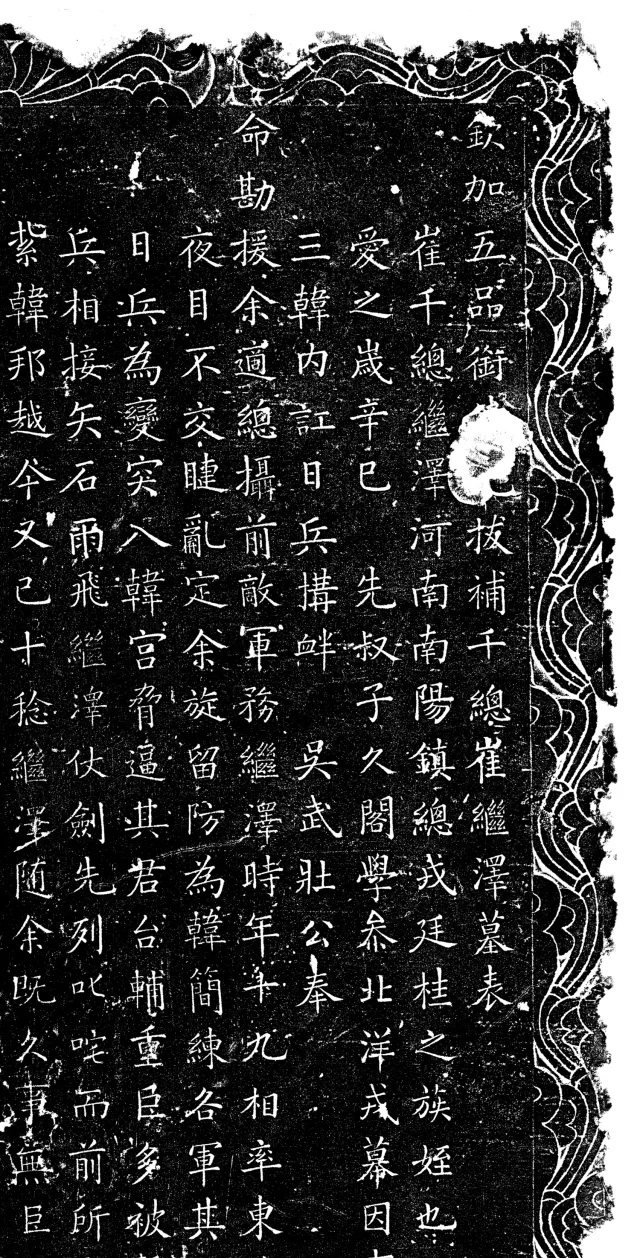 欽加五品銜拔補千總崔繼澤墓表
崔千總繼澤河南南陽鎮總戎廷桂之族姪也
愛之歲辛巳 先叔子久閣學叅北洋戎幕因
三韓内訌日兵搆衅 吳武壯公奉
命勘援余適總攝前敵軍務繼澤時年十九相率東
夜目不交睫亂定余旋留防為韓簡練各軍其
日兵為變突入韓宮脅逼其君台輔重臣多被
兵相接矢石雨飛繼澤仗劍先列叱咤而前所
紮韓邦越今又已十稔繼澤随余既久事無巨